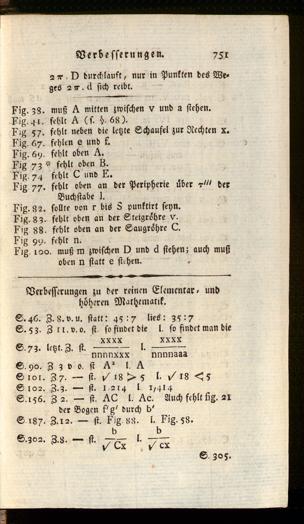 Verbesserungen. 751
2π. D durchlauft, nur in Punkten des We-
ges 2π. d sich reibt.
Fig. 38. muß A mitten zwischen v und a stehen.
Fig. 41. fehlt A (s. §. 68).
Fig. 57. fehlt neben die letzte Schaufel zur Rechten x.
Fig. 67. fehlen e und f.
Fig. 69. fehlt oben A.
Fig. 73 fehlt oben B.
Fig. 74 fehlt C und E.
Fig. 77. fehlt oben an der Peripherie über τ''' der
Buchstabe l.
Fig. 82. sollte von r bis S punktirt seyn.
Fig. 83. fehlt oben an der Steigröhre v.
Fig 88. fehlt oben an der Saugröhre C.
Fig 99. fehlt n.
Fig. 100. muß m zwischen D und d stehen; auch muß
oben n statt e stehen.
Verbesserungen zu der reinen Elementar- und
höheren Mathematik.
S. 46. Z. 8. v. u. statt: 45 : 7 lies: 35 : 7
S. 53. Z 11. v. o. st. so findet die l. so findet man die
S. 73. letzt. Z. st. xxxx/nnnnxxx l. xxxx/nnnnaaa
S. 90. Z 3 v o. st A² l. A
S 101. Z 7. — st. √18 > 5 l. √18 < 5
S 102. Z. 3. — st. 1 214 l. 1,414
S. 156. Z 2. — st. AC l. Ac. Auch fehlt fig. 21
der Bogen f'g' durch b'
S. 187. Z. 12. — st. Fig. 88. l. Fig. 58.
S. 302. Z. 8. — st. b/√Cx l. b/√cx
S. 305.